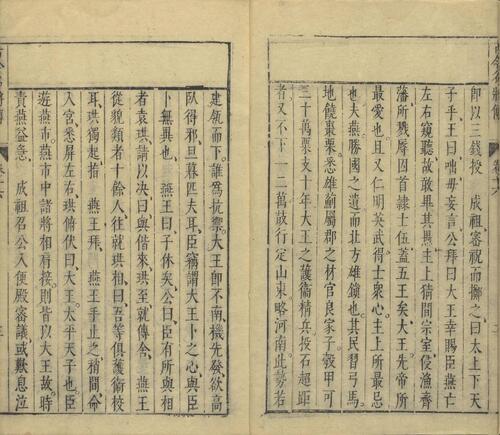 即以三錢授　成祖審祝而擲之曰太上下天
子乎王曰咄毋妄言公拜曰大王幸賜臣燕亡
左右窺聽故敢畢其愚主上猜間宗室侵漁齊
藩所戮辱囚首隸士伍蓋五王矣大王先帝所
最愛也且又仁明英武得士衆心主上所最忌
也夫燕勝國之遺而北方雄鎮也其民習弓馬
地饒棗栗悉雄薊屬郡之材官良家子彀甲可
三十萬粟支十年大王之護衞精兵投石超距
者又不下一二萬鼓行定山東略河南此勢若
建瓴而下誰爲抗禦大王即不南機先發欲高
臥得邪旦暮匹夫耳臣竊謂大王卜之心與臣
卜無異也　燕王曰子休矣公曰臣有所與相
者袁珙請以決曰與偕來珙至就傳舍　燕王
從貌類者十餘人往就珙相曰吾等俱護衞校
耳珙獨起指　燕王拜　燕王手止之稍間命
入宮悉屏左右珙俯伏曰大王太平天子也臣
遊燕市燕市中諸將相肩接則皆以大王故時
責燕益急　成祖召公入便殿審議或歎息泣